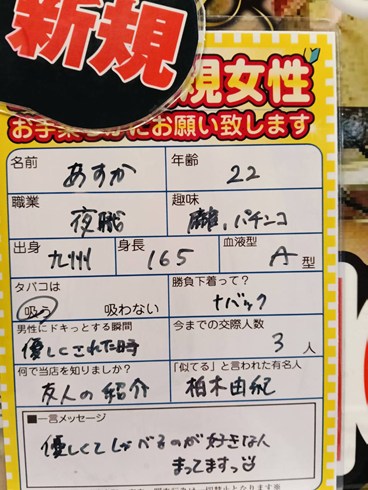 新規
規女性
お手柔らかにお願い致します
名前 あすか 年齢 22
職業 夜職 趣味 麻雀、パチンコ
出身 九州 身長 165 血液型 A型
タバコは 勝負下着って?
吸う 吸わない Tバック
男性にドキっとする瞬間 今までの交際人数
優しくされた時 3人
何で当店を知りましたか? 「似てる」と言われた有名人
友人の紹介 柏木由紀
■一言メッセージ
優しくてしゃべるのが好きな人
まってますっ